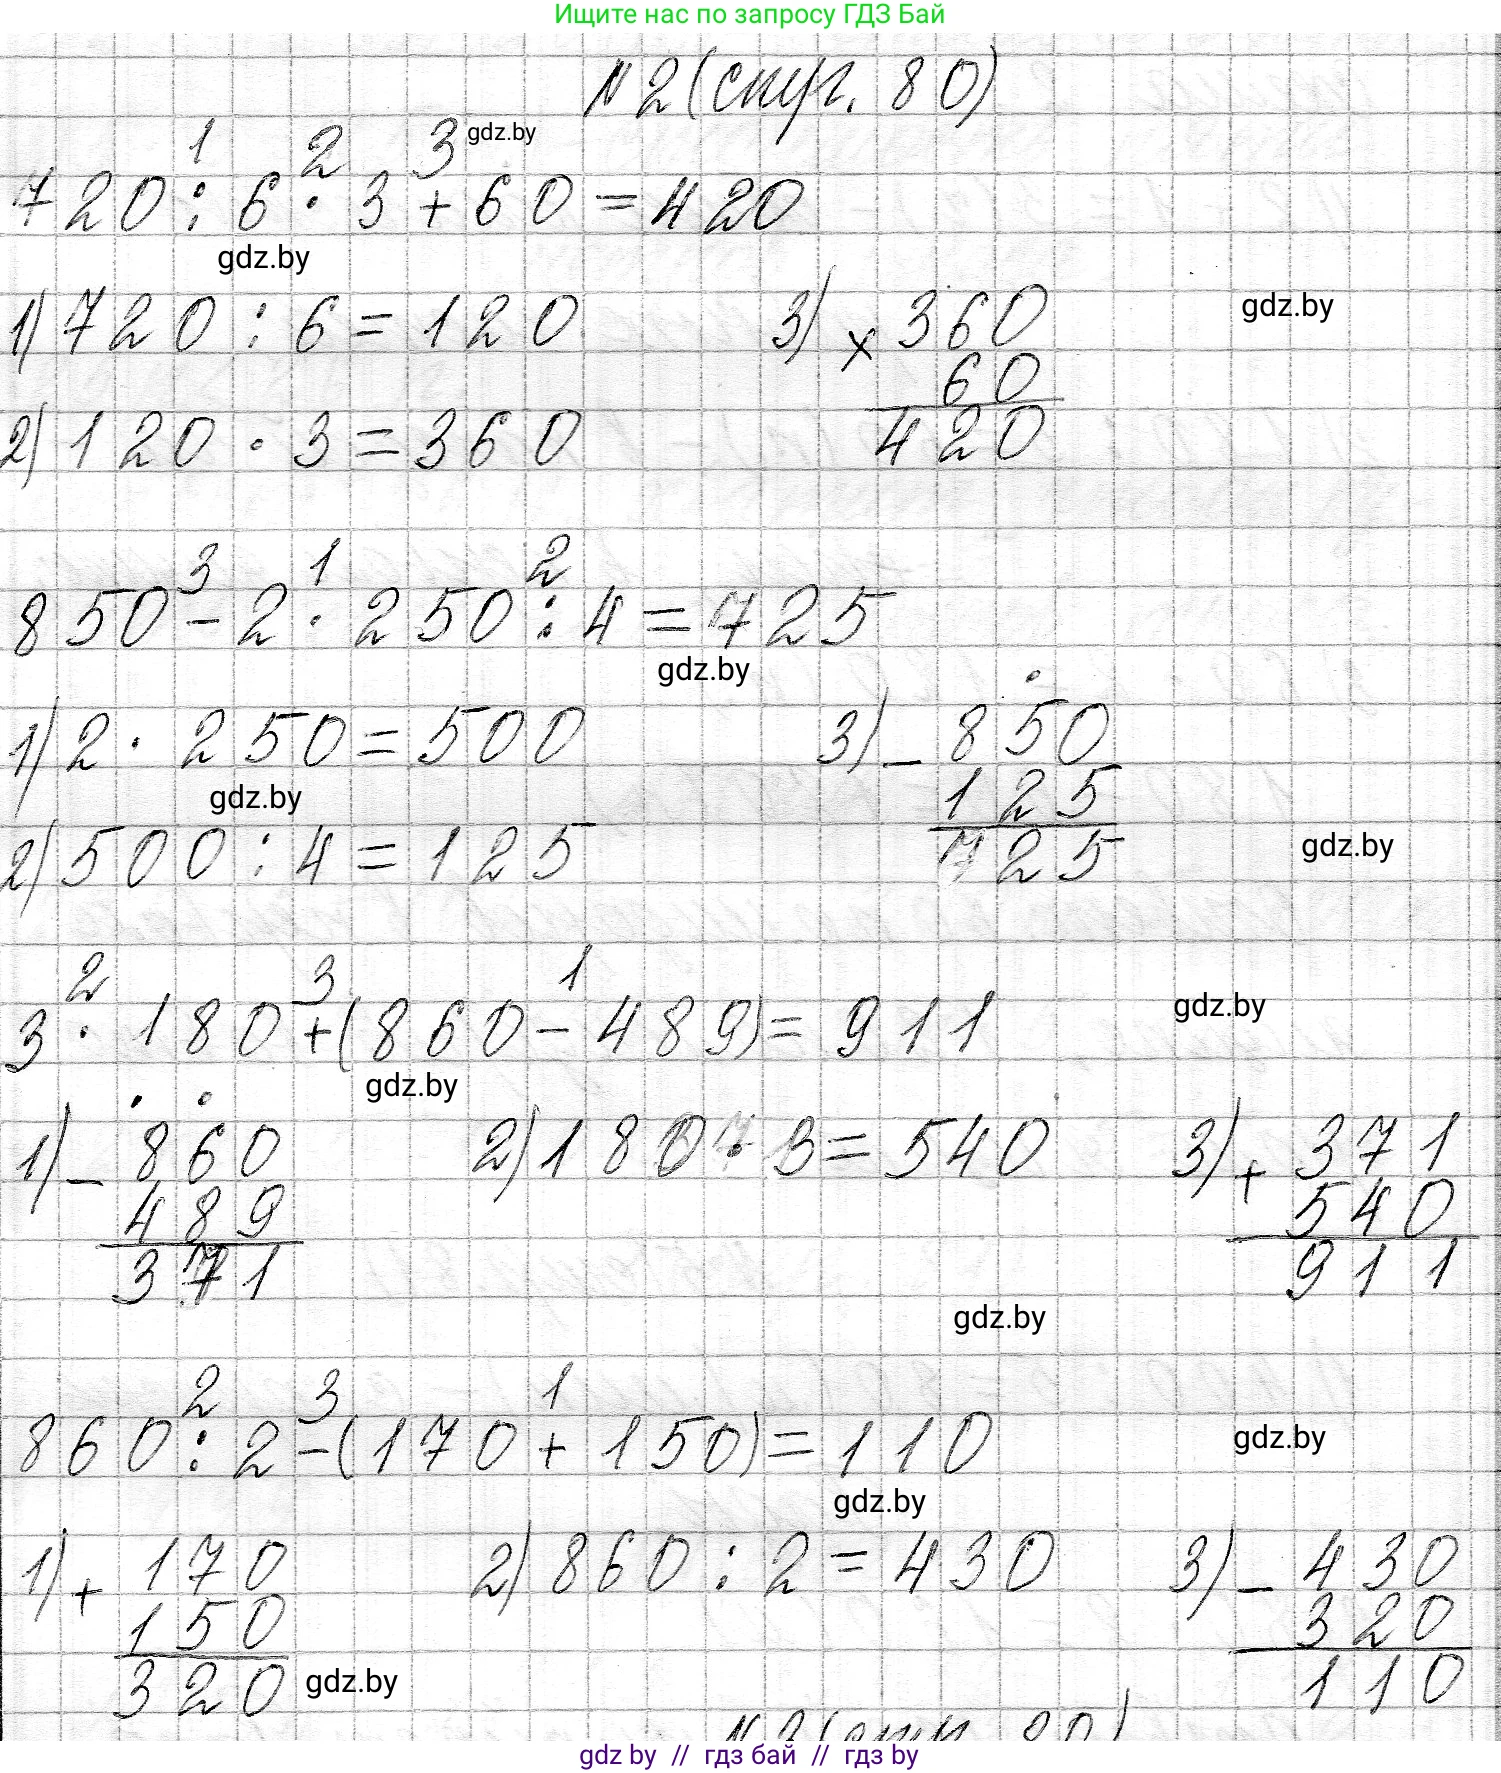 Ищите нас по запросу ГДЗ Бай
№2 (стр. 80)
1 2 3 gdz.by
720 : 6 · 3 + 60 = 420
gdz.by
1) 720 : 6 = 120 3) × 360 gdz.by
60
2) 120 · 3 = 360 420
3 1 2
850 - 2 · 250 : 4 = 725
gdz.by
1) 2 · 250 = 500 3) - 850
gdz.by 125
2) 500 : 4 = 125 725 gdz.by
2 3 1
3 · 180 + (860 - 489) = 911 gdz.by
gdz.by
1) - 860 2) 180 · 3 = 540 3) + 371
489 540
371 911
gdz.by
2 3 1
860 : 2 - (170 + 150) = 110 gdz.by
gdz.by
1) + 170 2) 860 : 2 = 430 3) - 430
150 320
320 gdz.by 110
gdz by // гдз бай // гдз by